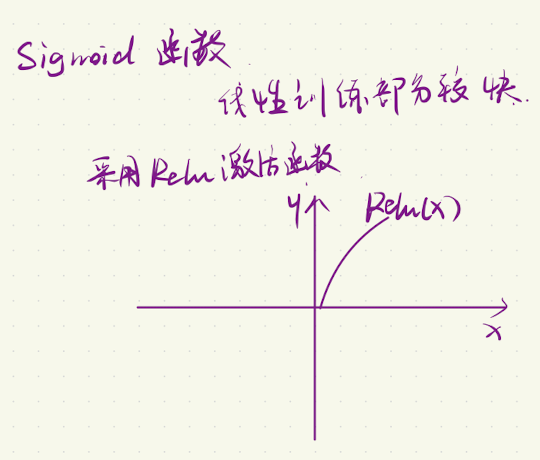 Sigmoid 函数
线性训练部分较快.
采用Relu激活函数
y
Relu(x)
x